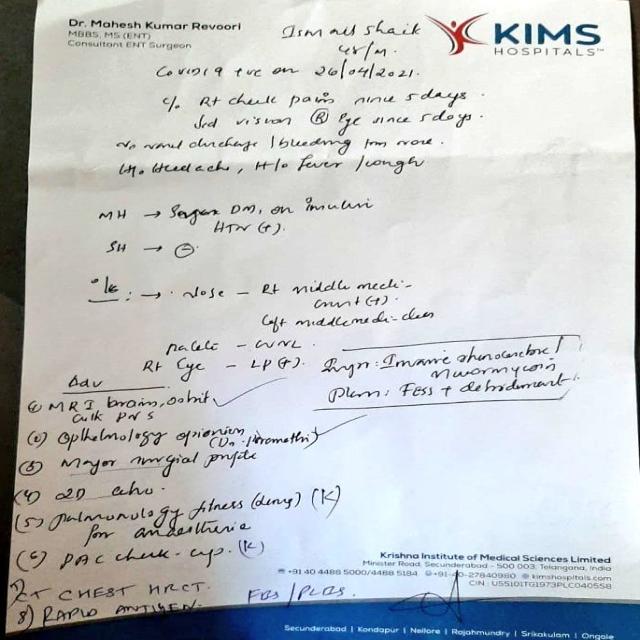 Dr. Mahesh Kumar Revoori
MBBS, MS (ENT)
Consultant ENT Surgeon
KIMS
HOSPITALS™
Ismail Shaik
48/M.
Covid19 +ve on 26/04/2021.
c/o Rt cheek pain since 5 days.
vision (R) Eye since 5 days.
No nasal discharge / bleeding from nose.
H/o Headache, H/o fever / cough
MH → DM, on insulin
HTN (+).
SH → ⊖.
O/E: → Nose – Rt middle
(+).
Left middle
Palate –
Rt Eye – LP(+).
Imp: Invasive
mucormycosis
Plan: FESS + debridement
Adv
(1) MRI brain, orbit
PNS
(2) Opthelmology opionion
(3) Major surgical profile
(4) 2D echo.
(5) Pulmonology fitness (K)
for anaesthesia
(6) PAC check-up. (K)
7) CT CHEST HRCT.
8) RAPID ANTIGEN.
FBS / PLBS.
Krishna Institute of Medical Sciences Limited
Minister Road, Secunderabad - 500 003, Telangana, India
+91 40 4488 5000/4488 5184 +91-40-27840980 kimshospitals.com
CIN : U55101TG1973PLC040558
Secunderabad | Kondapur | Nellore | Rajahmundry | Srikakulam | Ongole